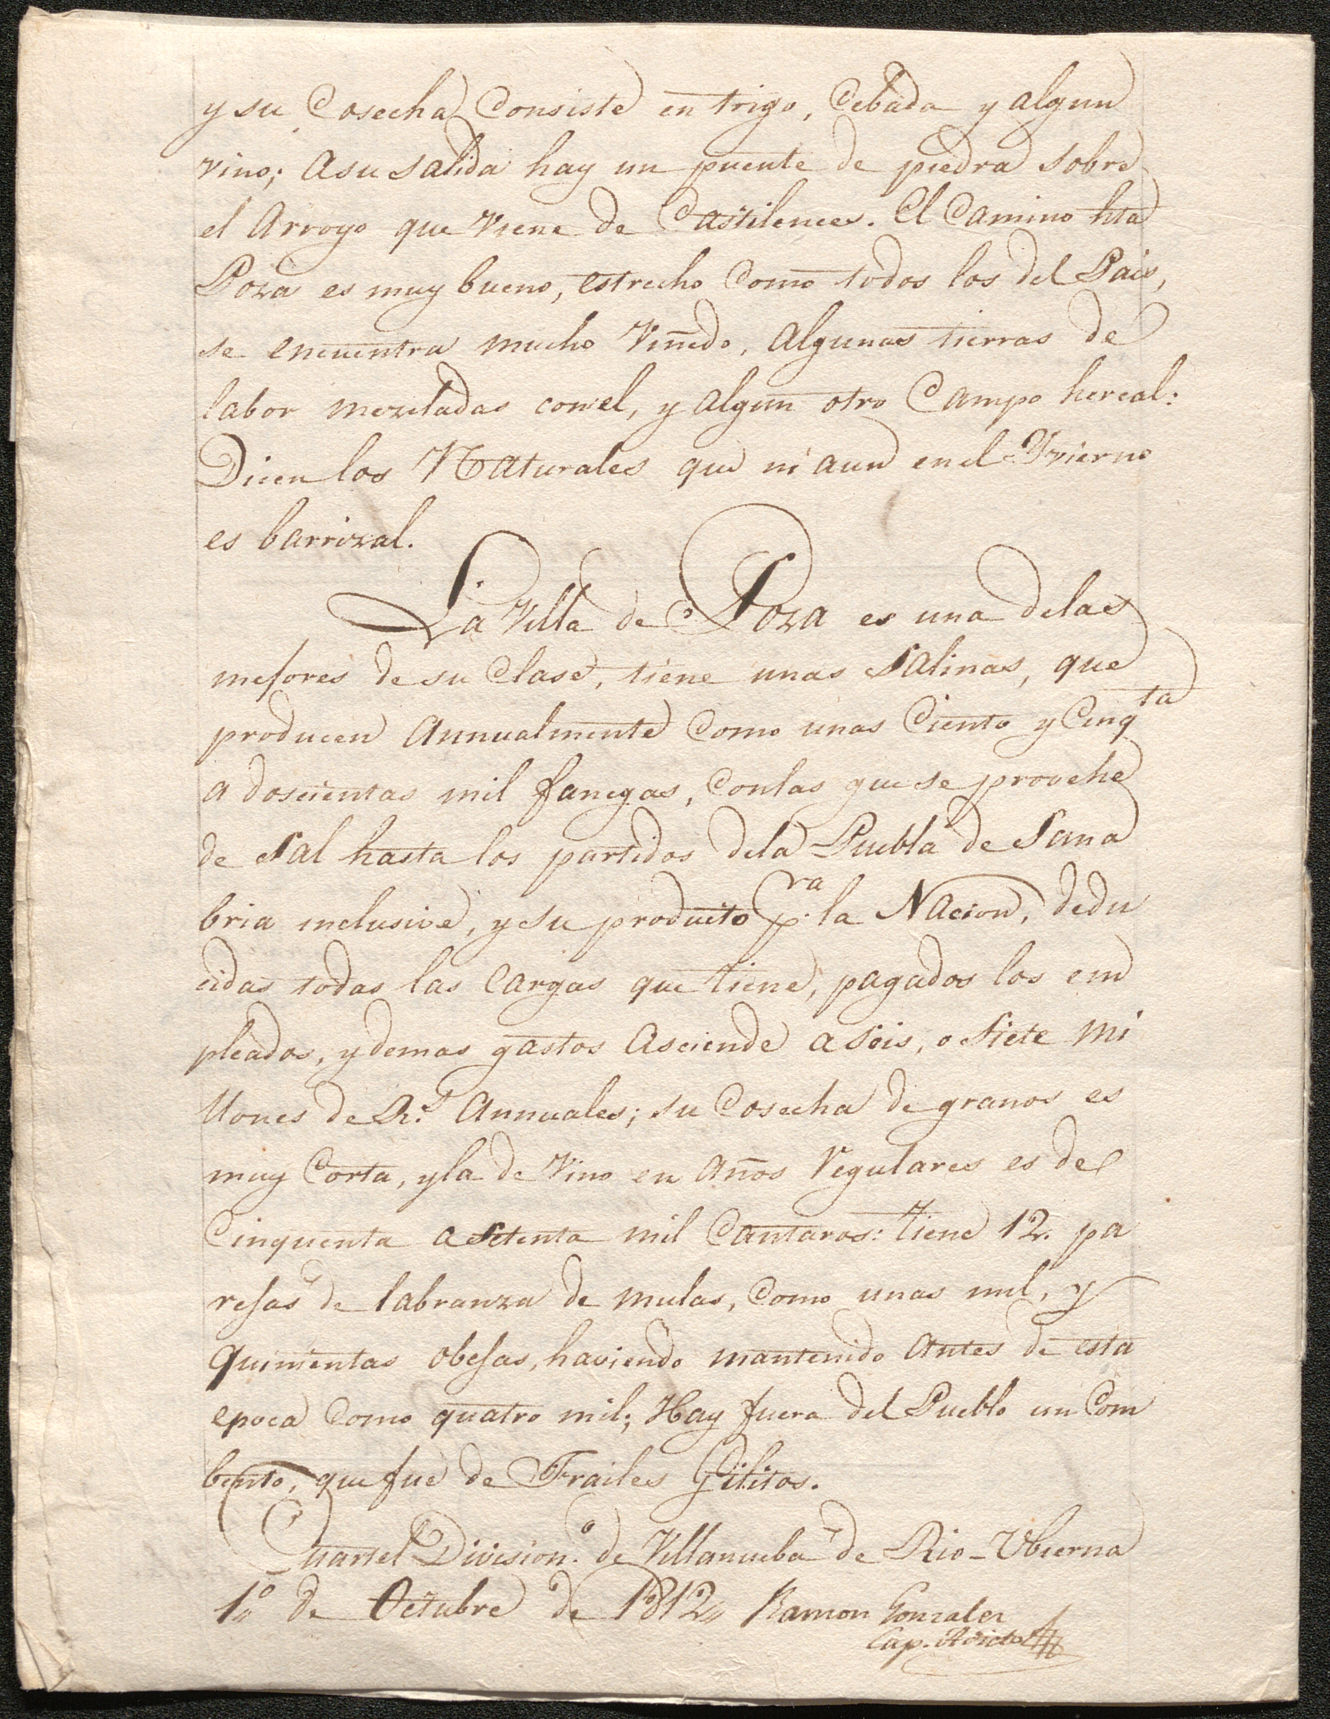 y su Cosecha Consiste en trigo, Cebada y algun
vino; a su salida hay un puente de piedra sobre
el Arroyo que viene de Castilences. El Camino hta
Poza es muy bueno, estrecho Como todos los del Pais,
se encuentra mucho Viñedo, algunas tierras de
labor mezcladas con el, y algun otro Campo hereal:
Dicen los Naturales que ni aun en el Yvierno
es barrizal.
La Villa de Poza es una delas
mejores de su Clase, tiene unas Salinas, que
producen Annualmente Como unas Ciento y Cinqta
a doscientas mil fanegas, Conlas que se provehe
de Sal hasta los partidos dela Puebla de Sana
bria inclusive, y su producto pra la Nacion, dedu
cidas todas las Cargas que tiene, pagados los em
pleados, y demas gastos Asciende a Seis, o Siete mi
llones de Rs. Annuales; su Cosecha de granos es
muy Corta, y la de Vino en Años Regulares es de
Cinquenta a Setenta mil Cantaras: tiene 12. pa
rejas de labranza de mulas, Como unas mil, y
quinientas obejas, haviendo mantenido Antes de esta
epoca Como quatro mil; Hay fuera del Pueblo un Com
bento, que fue de Frailes Gilitos.
Quartel Division.º de Villanueba de Rio-Vbierna
1º de Octubre de 1812 Ramon Gonzalez
Cap. Adicto